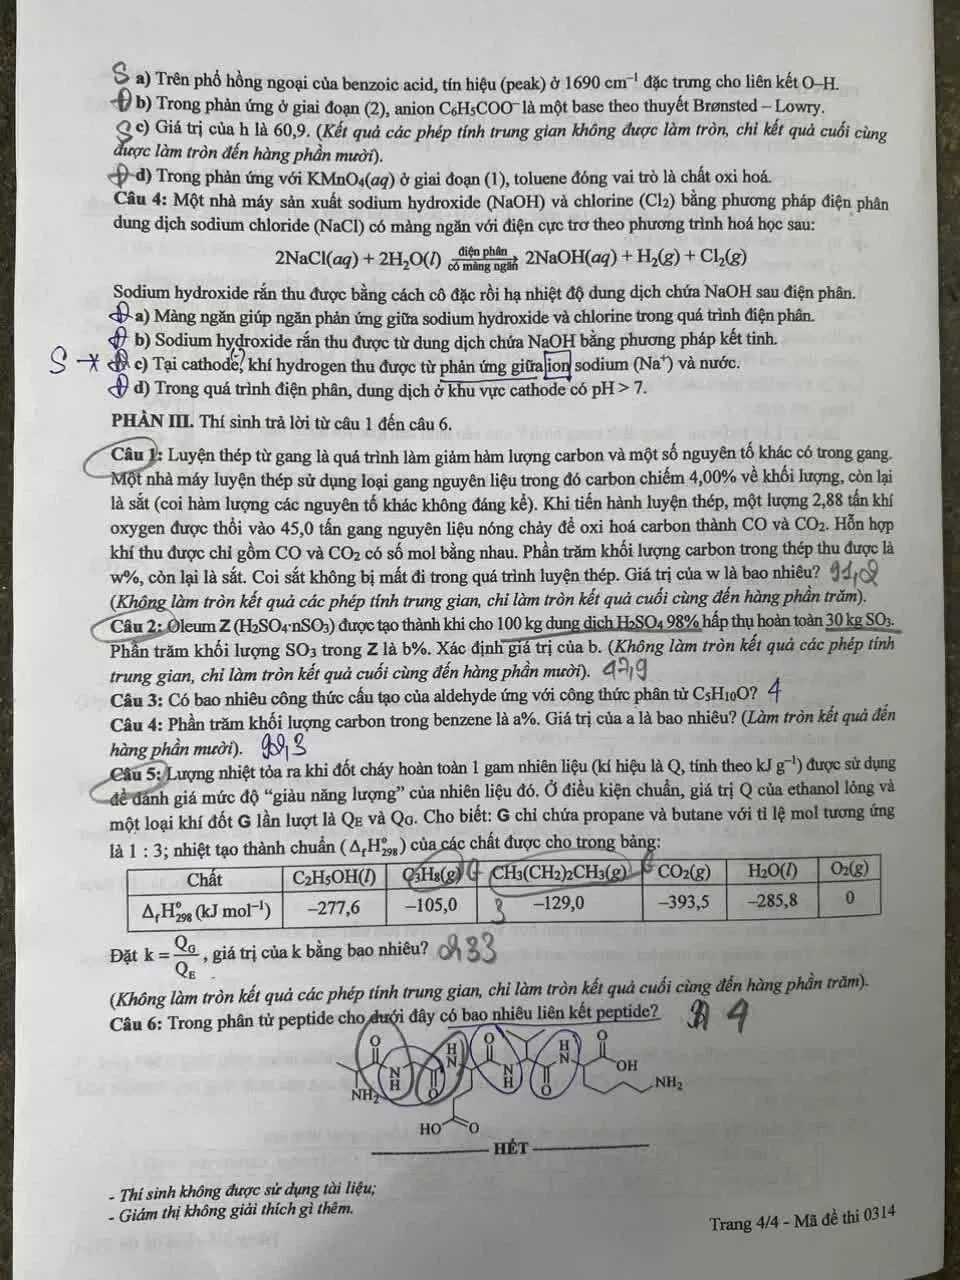 S a) Trên phổ hồng ngoại của benzoic acid, tín hiệu (peak) ở 1690 cm⁻¹ đặc trưng cho liên kết O–H.
Đ b) Trong phản ứng ở giai đoạn (2), anion C₆H₅COO⁻ là một base theo thuyết Brønsted – Lowry.
S c) Giá trị của h là 60,9. (Kết quả các phép tính trung gian không được làm tròn, chỉ kết quả cuối cùng
được làm tròn đến hàng phần mười).
Đ d) Trong phản ứng với KMnO₄(aq) ở giai đoạn (1), toluene đóng vai trò là chất oxi hoá.
Câu 4: Một nhà máy sản xuất sodium hydroxide (NaOH) và chlorine (Cl₂) bằng phương pháp điện phân
dung dịch sodium chloride (NaCl) có màng ngăn với điện cực trơ theo phương trình hoá học sau:
2NaCl(aq) + 2H₂O(l) điện phân có màng ngăn → 2NaOH(aq) + H₂(g) + Cl₂(g)
Sodium hydroxide rắn thu được bằng cách cô đặc rồi hạ nhiệt độ dung dịch chứa NaOH sau điện phân.
Đ a) Màng ngăn giúp ngăn phản ứng giữa sodium hydroxide và chlorine trong quá trình điện phân.
Đ b) Sodium hydroxide rắn thu được từ dung dịch chứa NaOH bằng phương pháp kết tinh.
S c) Tại cathode, khí hydrogen thu được từ phản ứng giữa ion sodium (Na⁺) và nước.
Đ d) Trong quá trình điện phân, dung dịch ở khu vực cathode có pH > 7.
PHẦN III. Thí sinh trả lời từ câu 1 đến câu 6.
Câu 1: Luyện thép từ gang là quá trình làm giảm hàm lượng carbon và một số nguyên tố khác có trong gang.
Một nhà máy luyện thép sử dụng loại gang nguyên liệu trong đó carbon chiếm 4,00% về khối lượng, còn lại
là sắt (coi hàm lượng các nguyên tố khác không đáng kể). Khi tiến hành luyện thép, một lượng 2,88 tấn khí
oxygen được thổi vào 45,0 tấn gang nguyên liệu nóng chảy để oxi hoá carbon thành CO và CO₂. Hỗn hợp
khí thu được chỉ gồm CO và CO₂ có số mol bằng nhau. Phần trăm khối lượng carbon trong thép thu được là
w%, còn lại là sắt. Coi sắt không bị mất đi trong quá trình luyện thép. Giá trị của w là bao nhiêu?
(Không làm tròn kết quả các phép tính trung gian, chỉ làm tròn kết quả cuối cùng đến hàng phần trăm).
Câu 2: Oleum Z (H₂SO₄·nSO₃) được tạo thành khi cho 100 kg dung dịch H₂SO₄ 98% hấp thụ hoàn toàn 30 kg SO₃.
Phần trăm khối lượng SO₃ trong Z là b%. Xác định giá trị của b. (Không làm tròn kết quả các phép tính
trung gian, chỉ làm tròn kết quả cuối cùng đến hàng phần mười). 47,9
Câu 3: Có bao nhiêu công thức cấu tạo của aldehyde ứng với công thức phân tử C₅H₁₀O? 4
Câu 4: Phần trăm khối lượng carbon trong benzene là a%. Giá trị của a là bao nhiêu? (Làm tròn kết quả đến
hàng phần mười). 92,3
Câu 5: Lượng nhiệt tỏa ra khi đốt cháy hoàn toàn 1 gam nhiên liệu (kí hiệu là Q, tính theo kJ g⁻¹) được sử dụng
để đánh giá mức độ “giàu năng lượng” của nhiên liệu đó. Ở điều kiện chuẩn, giá trị Q của ethanol lỏng và
một loại khí đốt G lần lượt là Q_E và Q_G. Cho biết: G chỉ chứa propane và butane với tỉ lệ mol tương ứng
là 1 : 3; nhiệt tạo thành chuẩn (Δ_fH°₂₉₈) của các chất được cho trong bảng:
Chất C₂H₅OH(l) C₃H₈(g) CH₃(CH₂)₂CH₃(g) CO₂(g) H₂O(l) O₂(g)
Δ_fH°₂₉₈ (kJ mol⁻¹) –277,6 –105,0 –129,0 –393,5 –285,8 0
Đặt k = Q_G/Q_E, giá trị của k bằng bao nhiêu?
(Không làm tròn kết quả các phép tính trung gian, chỉ làm tròn kết quả cuối cùng đến hàng phần trăm).
Câu 6: Trong phân tử peptide cho dưới đây có bao nhiêu liên kết peptide? 4
O H N O H N O
N H O N H O OH
NH₂ NH₂
HO O
HẾT
- Thí sinh không được sử dụng tài liệu;
- Giám thị không giải thích gì thêm.
Trang 4/4 - Mã đề thi 0314